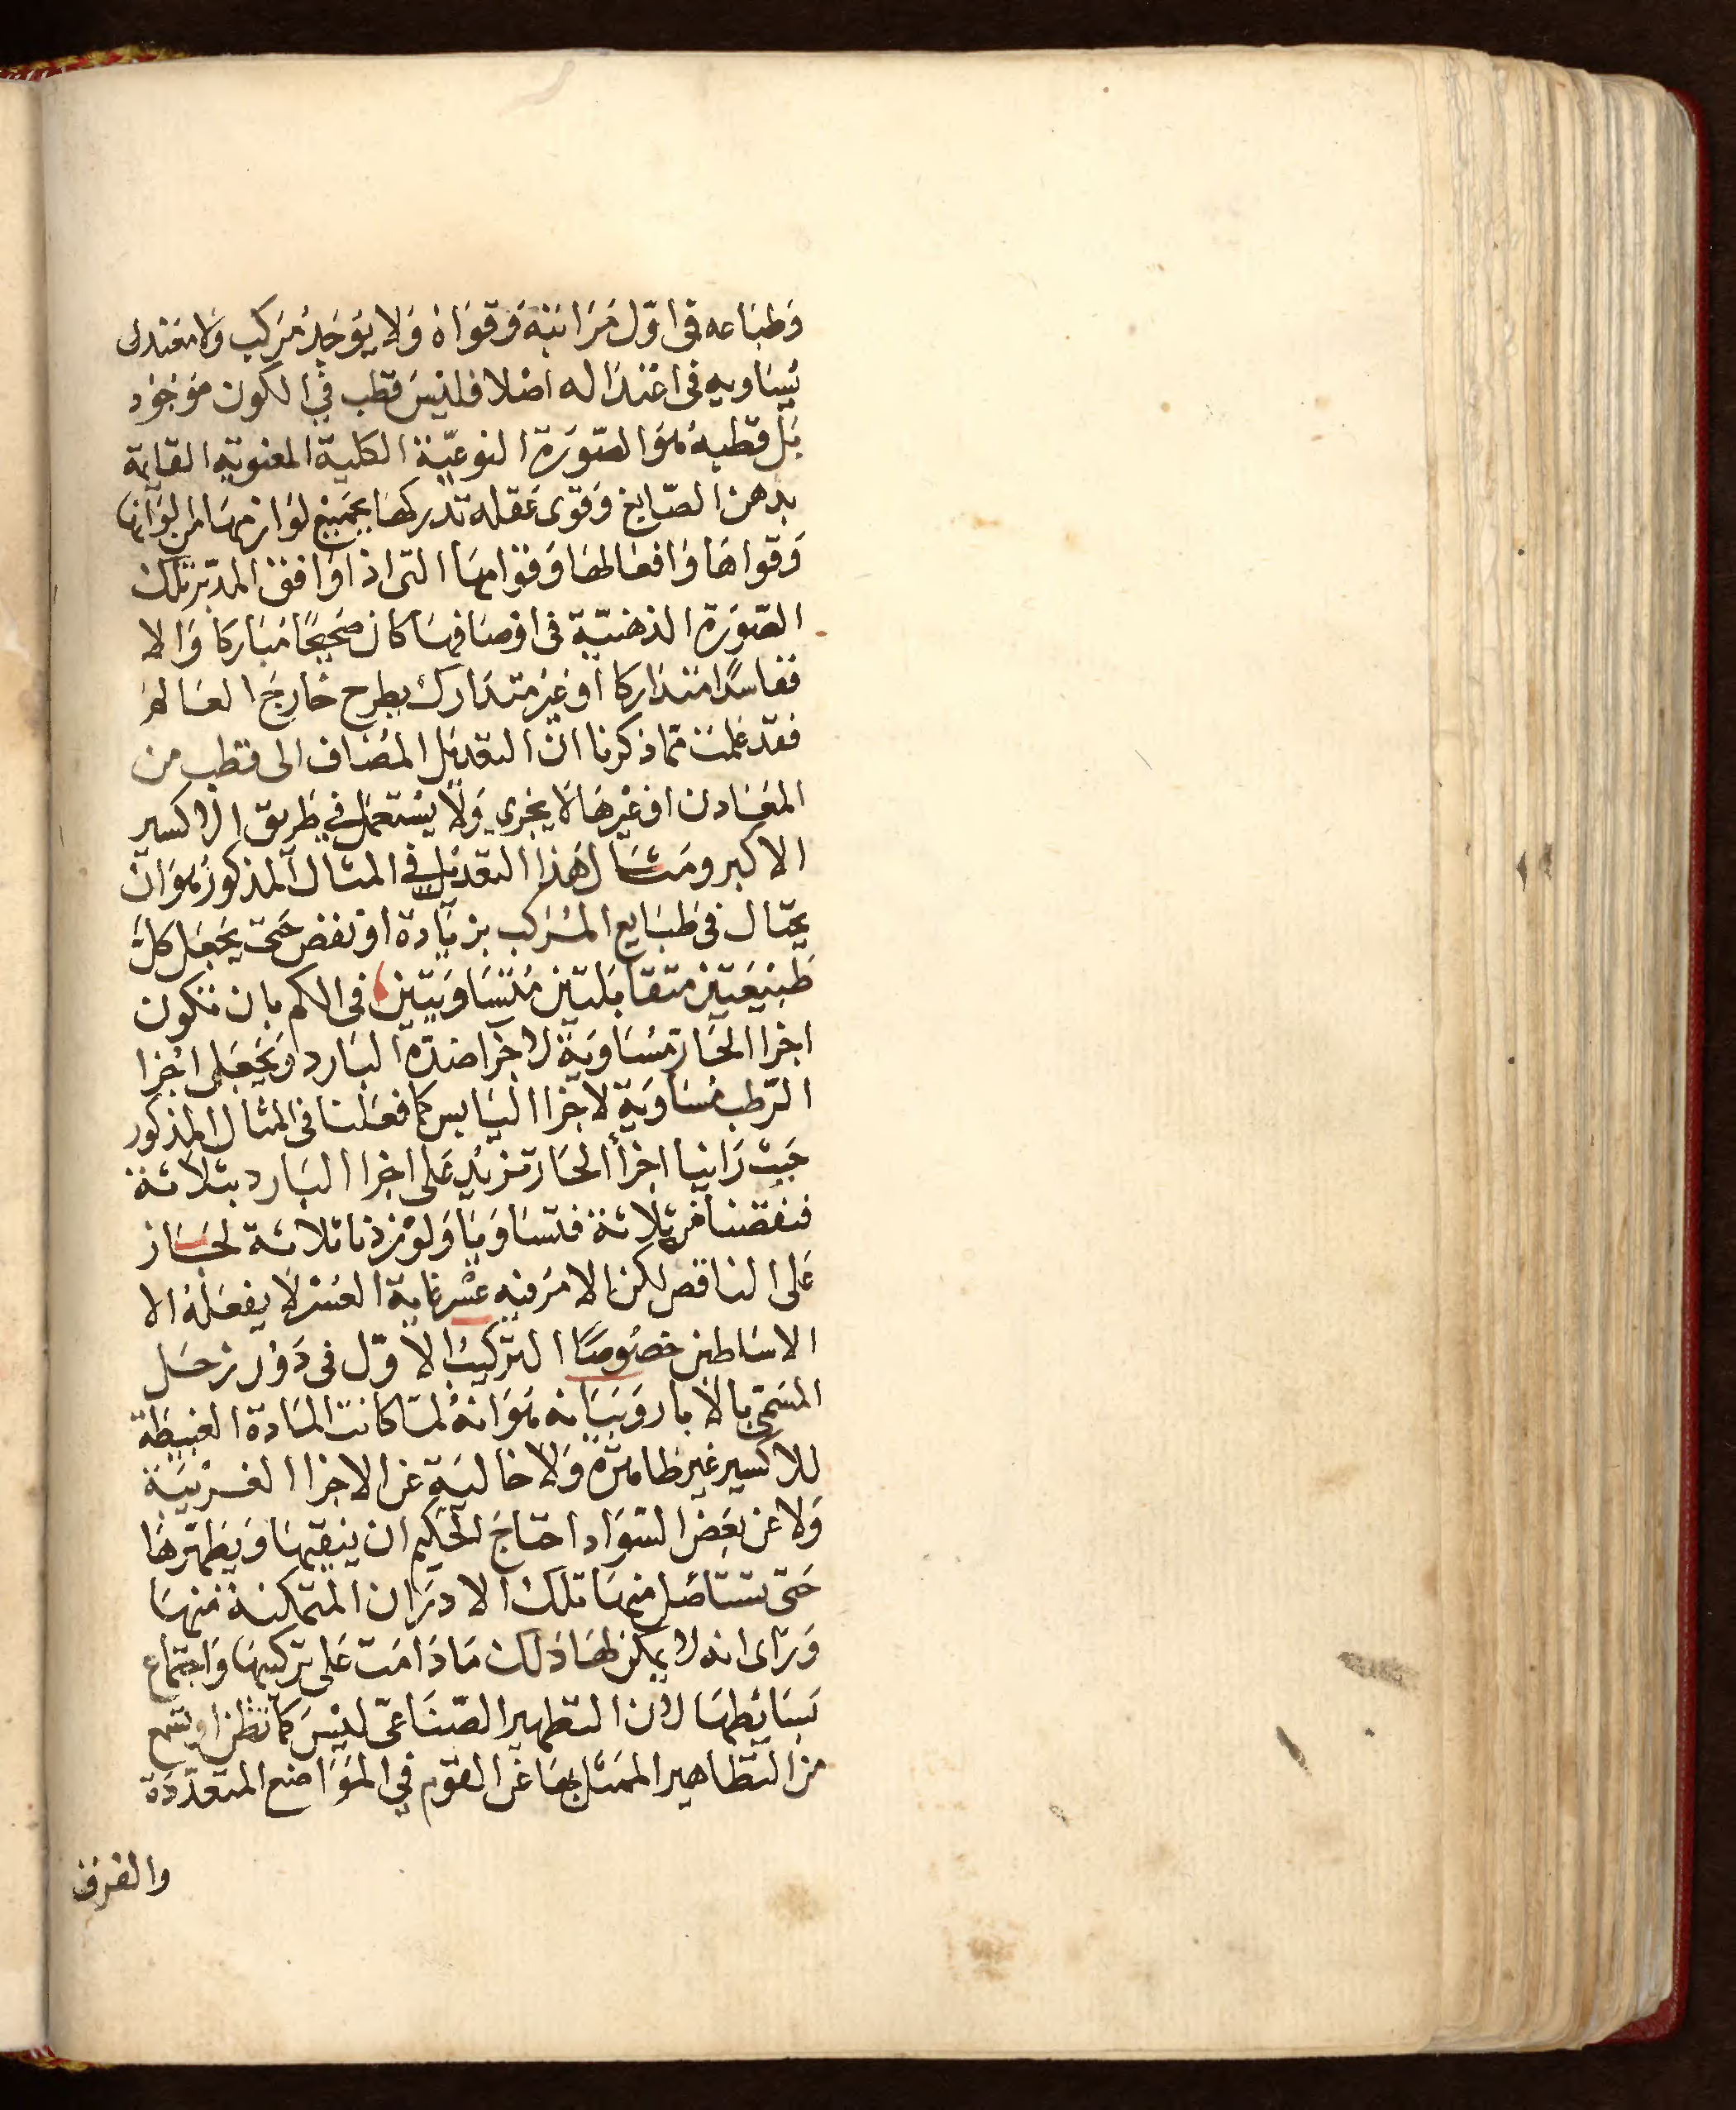 وَطبَاعه في اوّل مَرَاتبَه وَقوَاهُ وَلا يوْجَدُ مرَكب وَلا معْتدل
يُسَاويه في اعْتدَاله اصْلا فليْسَ قطب في الكون موْجوْد
بَل قطبه هوَ الصّورَة النوعيّة الكلية المعنوية القائمة
بذهن الصّانع وَقوى عَقله تدركهَا بجَميْع لوَازمهَا من الوَانهَا
وَقواهَا وَافعَالهَا وَقوَامهَا التى اذا وَافق المدبّر تلك
الصّورَة الذهنيّة فى اوْصَافهَا كان صَحيْحًا مُبَاركا وَالا
ففاسدًا متدَاركا اوْ غيْر متدَارك يطرح خَارجَ العَالم
فقد علمْتَ ممّا ذكرنا انّ التعديْل المضاف الى قطب من
المعَادن اوْ غيْرهَا لا يجري وَلا يسْتعمَل في طريق الاكسير
الاكبر ومثَال هَذا التعديْل في المثال المذكور هوَ انْ
يحتال في طبَايع المركب بزيَادة اوْ نقص حَتى يجعَل كلّ
طبيْعَتيْن متقابَلتيْن مُتسَاوَيتيْن في الكم بان تكون
اجزا الحَار مُسَاوَية لاجزا ضدّه البَارد وَيجعَل اجْزا
الرّطب مسَاوَية لاجزا اليَابس كما فعَلنا في المثال المذكور
حَيْث رَاينا اجزأ الحَار تزيْد عَلى اجزا البَارد بثلاثة
فنقصْنا من ثلاثة فتسَاوَيا وَلوْ زدْنا ثلاثة لجَاز
عَلى الناقص لكن الامرَ فيْه عسْر غاية العسْر لا يفعَلهُ الا
الاسَاطين خصُوصًا الترْكيبُ الاوّل في دَوْر زحَل
المسَمّى بالابار وَبيَانه هوَ انهُ لمّا كانت المَادة الغبيطة
للاكسير غيْر طاهرَة وَلا خاليَة عَن الاجزا الغريْبَة
وَلا عَن بعْض السّوَاد احتاجَ الحكيم ان ينقيهَا وَيطهّرهَا
حَتى تستاصَل منهَا تلك الادرَان المتمكنة منهَا
وَرَاى انه لا يمكن لهَا ذلك مَا دَامَت عَلى تركيبهَا وَاجتماع
بسَائطهَا لان التطهير الصّنَاعيّ ليْسَ كما تظن او تسمع
من التطاهير الممَثل بهَا عَن القوْم في الموَاضع المتعدّدَة
والفرق